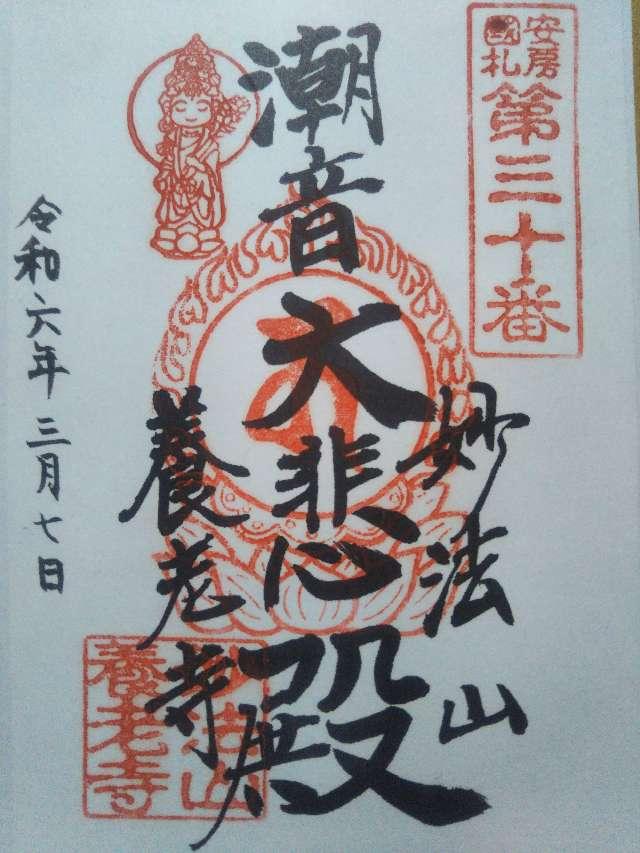 安房
國札
第三十番
潮音大悲殿
妙法山
養老寺
令和六年三月七日
妙法山
養老寺